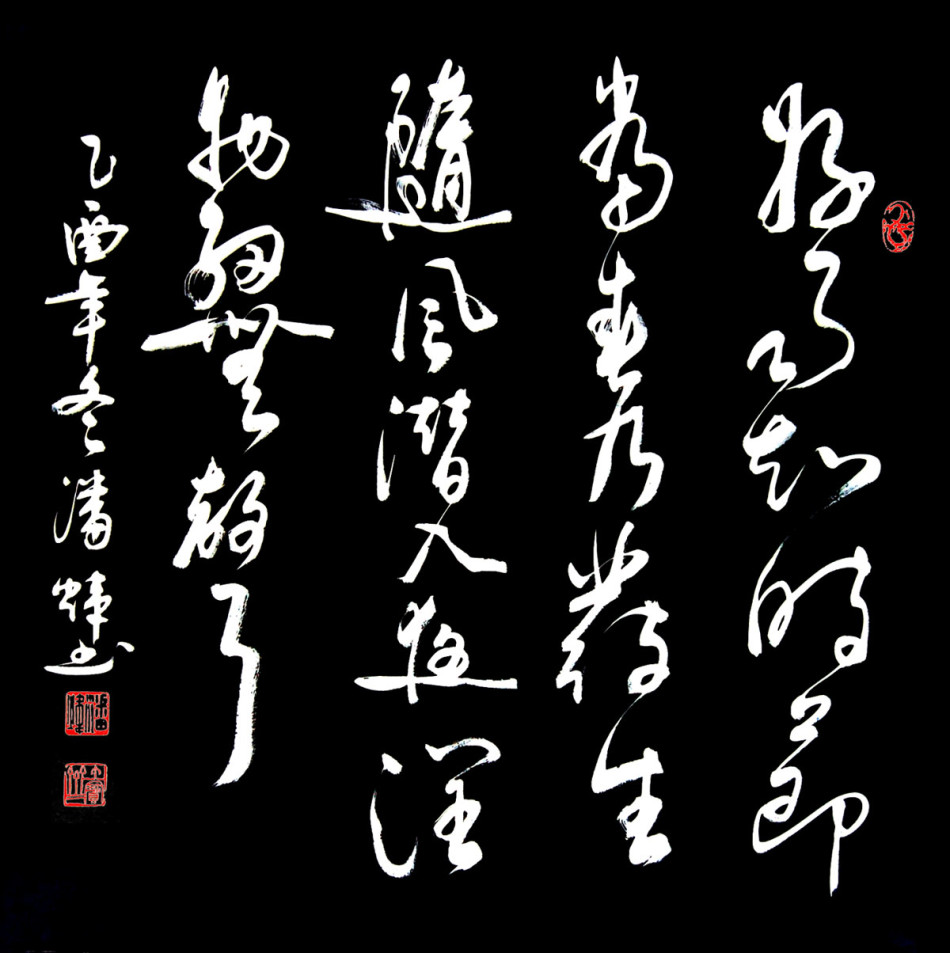 好雨知時節
當春乃發生
隨風潛入夜潤
物細無聲
乙酉年冬潘書